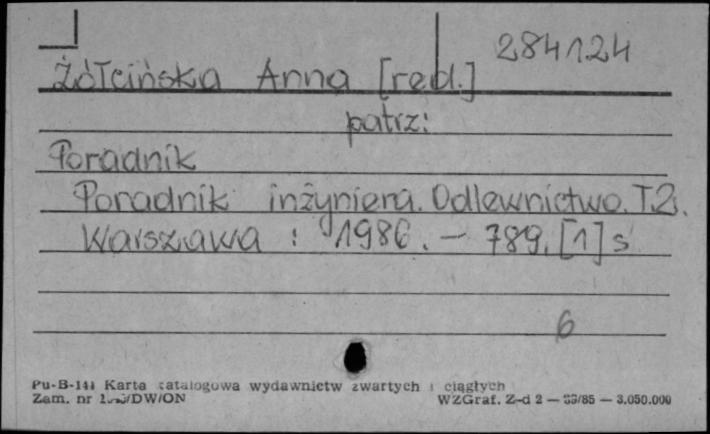 284124
Żółcińska Anna [red.]
patrz:
Poradnik
Poradnik inżyniera. Odlewnictwo. T.2.
Warszawa : 1986. – 789, [1] s
6
Pu-B-141 Karta katalogowa wydawnictw zwartych i ciągłych
Zam. nr /DW/ON WZGraf. Z-d 2 — 85 — 3.050.000